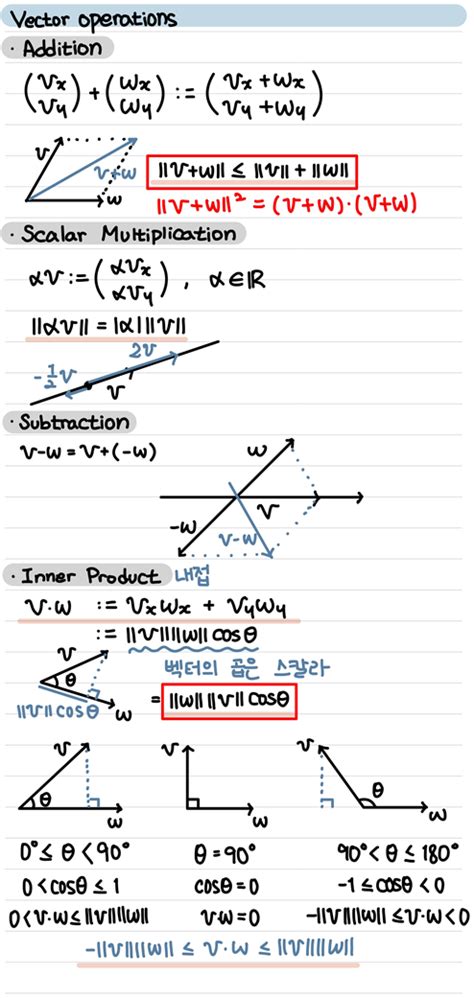 Vector operations
· Addition
(Vx Vy) + (Wx Wy) := (Vx + Wx Vy + Wy)
V
V+W
W
||V+W|| ≤ ||V|| + ||W||
||V+W||² = (V+W)·(V+W)
· Scalar Multiplication
αV := (αVx αVy) , α∈ℝ
||αV|| = |α| ||V||
2V
-1/2 V
V
· Subtraction
V-W = V+(-W)
W
V
-W
V-W
· Inner Product 내접
V·W := VxWx + VyWy
:= ||V|| ||W|| cosθ
벡터의 곱은 스칼라
V
θ
||V|| cosθ
W
= ||W|| ||V|| cosθ
V V V
θ θ
W W W
0° ≤ θ < 90° θ = 90° 90° < θ ≤ 180°
0 < cosθ ≤ 1 cosθ = 0 -1 ≤ cosθ < 0
0 < V·W ≤ ||V|| ||W|| V·W = 0 -||V|| ||W|| ≤ V·W < 0
-||V|| ||W|| ≤ V·W ≤ ||V|| ||W||